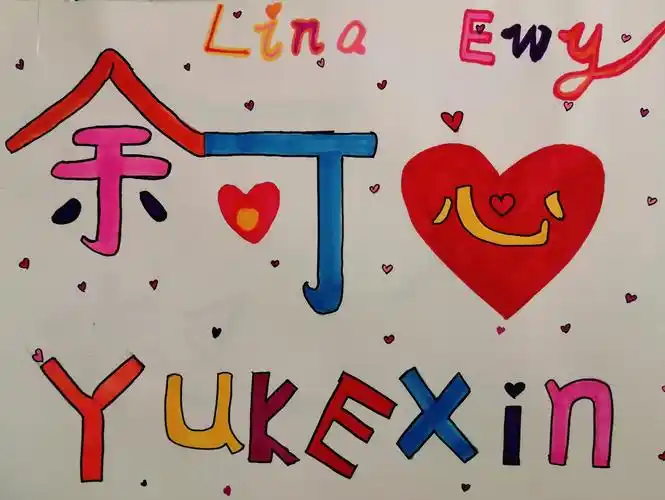 Lina Ewy
余可心
YuKExin